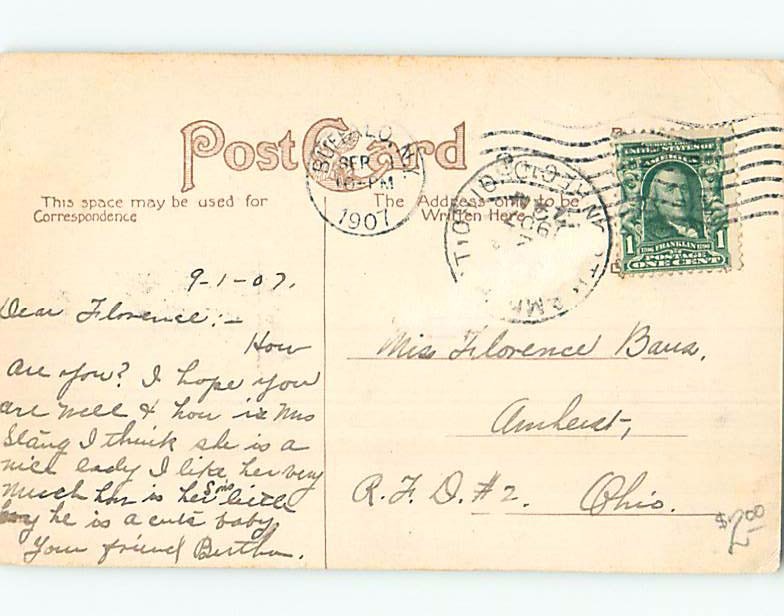 Post Card
BUFFALO, N.Y.
SEP
PM
1907
This space may be used for
Correspondence
The Address only to be
Written Here
UNITED STATES OF
AMERICA
1 FRANKLIN 1
POSTAGE
ONE CENT
OHIO
1907
9-1-07.
Dear Florence:-
How
are you? I hope you
are well & how is Mrs
Stang I think she is a
nice lady I like her very
much how is her Sons little
boy he is a cute baby
Your friend Bertha.
Miss Florence Baus,
Amherst,
R.F.D. #2. Ohio.
$2.00